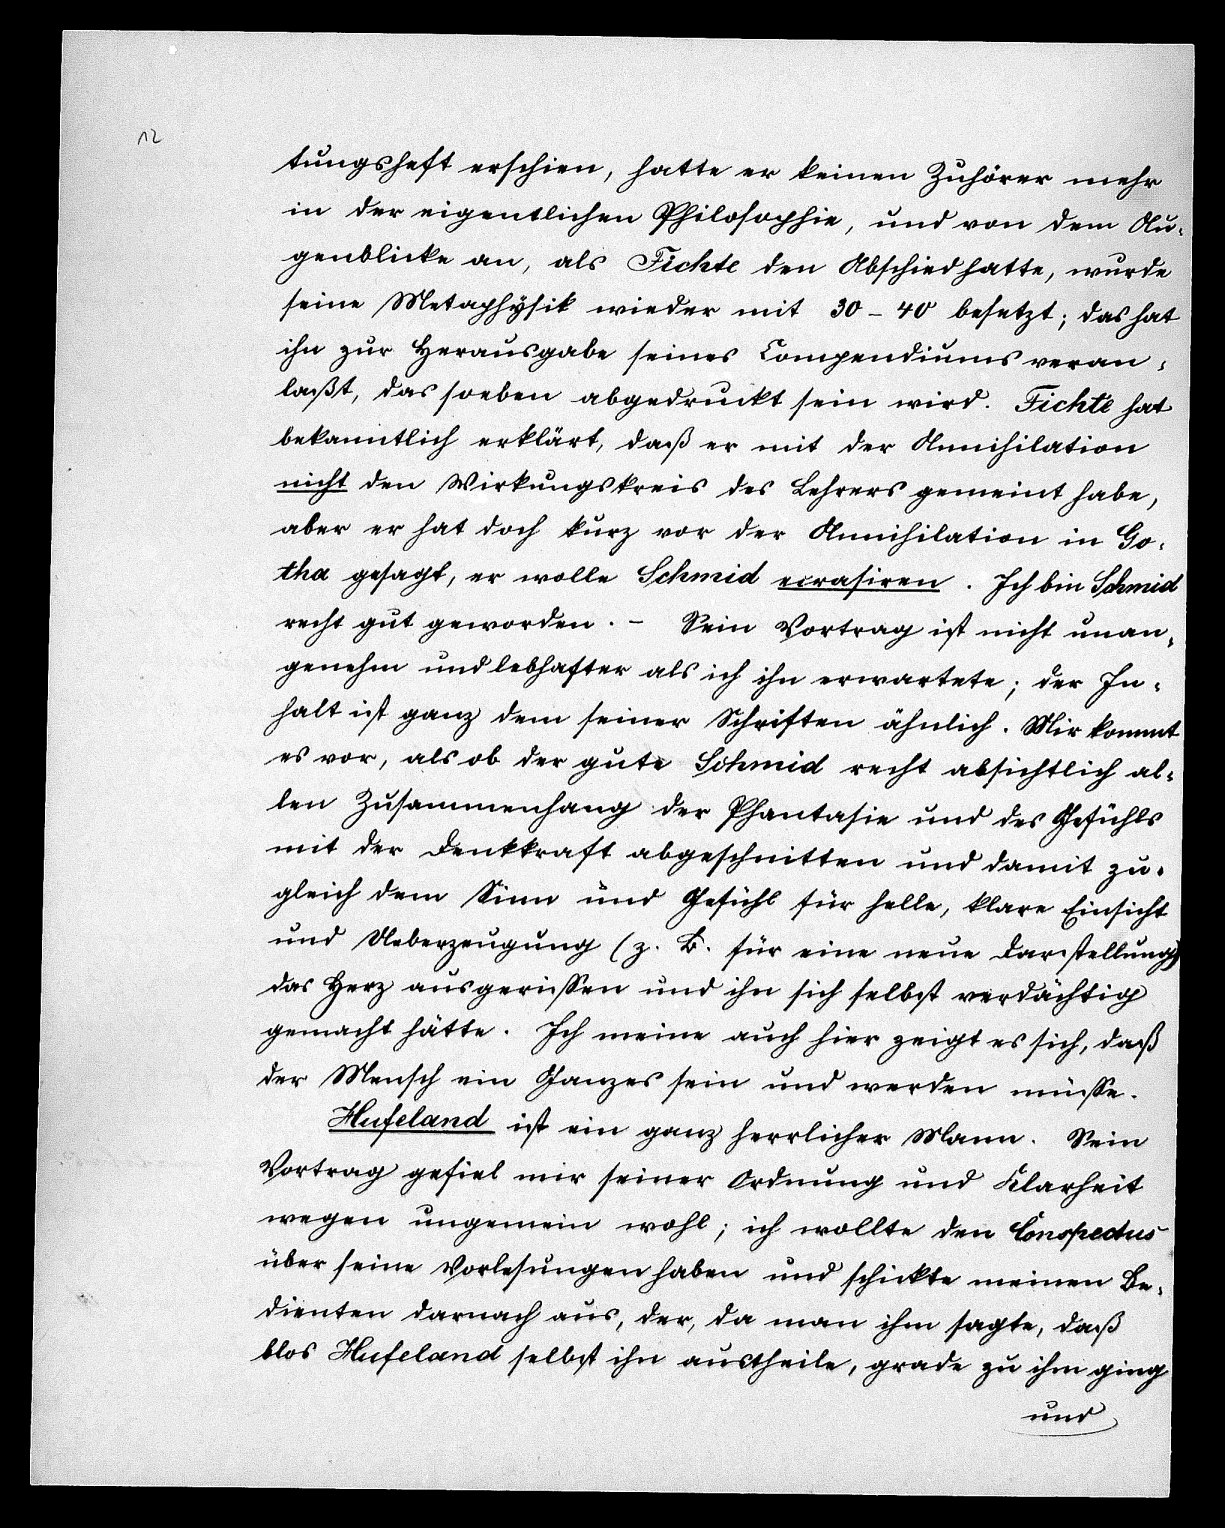 12
tungsheft erschien, hatte er keinen Zuhörer mehr
in der eigentlichen Philosophie, und von dem Au-
genblicke an, als Fichte den Abschied hatte, wurde
seine Metaphysik wieder mit 30 - 40 besetzt; das hat
ihn zur Herausgabe seines Compendiums veran-
laßt, das soeben abgedruckt sein wird. Fichte hat
bekanntlich erklärt, daß er mit der Annihilation
nicht den Wirkungskreis des Lehrers gemeint habe,
aber er hat doch kurz vor der Annihilation in Go-
tha gesagt, er wolle Schmid ecrasiren. Ich bin Schmid
recht gut geworden. - Sein Vortrag ist nicht unan-
genehm und lebhafter als ich ihn erwartete; der In-
halt ist ganz dem seiner Schriften ähnlich. Mir kommt
es vor, als ob der gute Schmid recht absichtlich al-
len Zusammenhang der Phantasie und des Gefühls
mit der Denkkraft abgeschnitten und damit zu-
gleich dem Sinn und Gefühl für helle, klare Einsicht
und Ueberzeugung (z. B. für eine neue Darstellung)
das Herz ausgerissen und ihn sich selbst verdächtig
gemacht hätte. Ich meine auch hier zeigt es sich, daß
der Mensch ein Ganzes sein und werden müsse.
Hufeland ist ein ganz herrlicher Mann. Sein
Vortrag gefiel mir seiner Ordnung und Klarheit
wegen ungemein wohl; ich wollte den Conspectus
über seine Vorlesungen haben und schickte meinen Be-
dienten darnach aus, der, da man ihm sagte, daß
blos Hufeland selbst ihn austheile, grade zu ihm ging
und